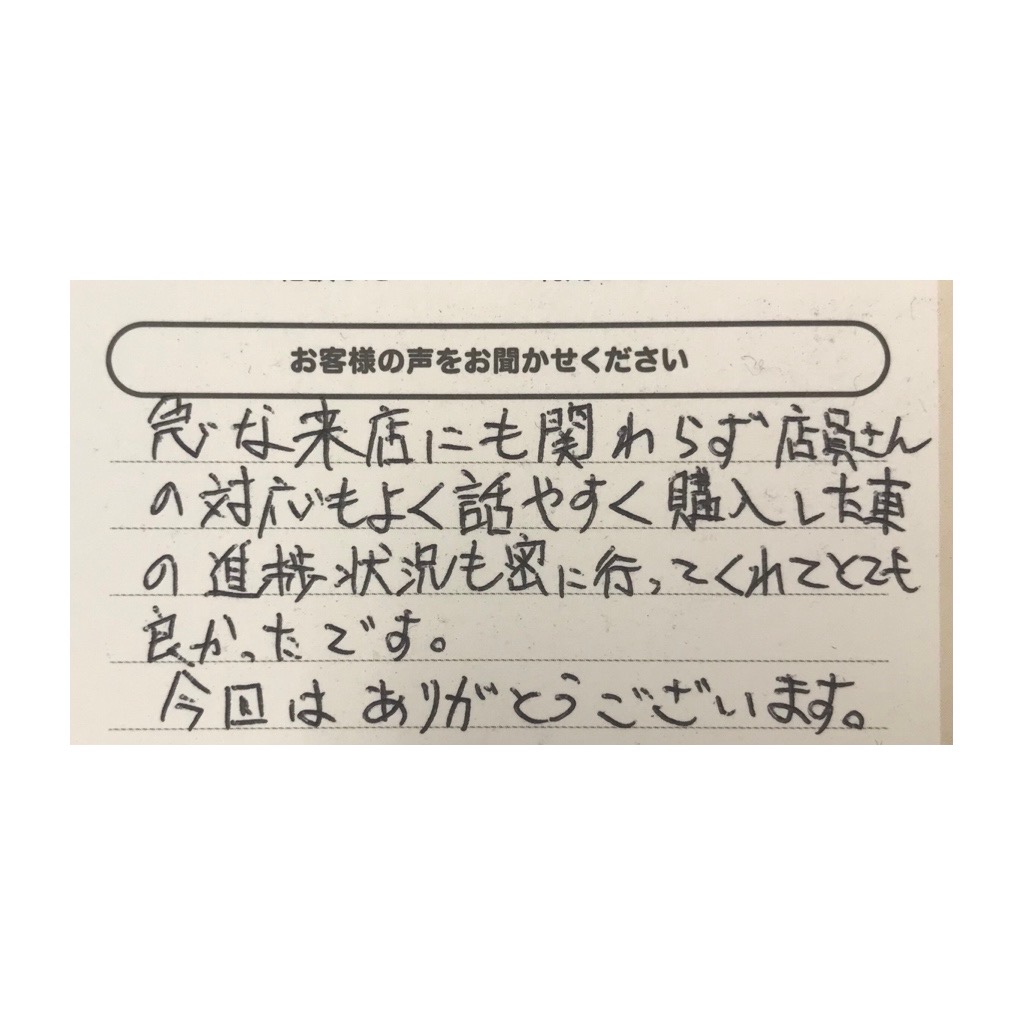 お客様の声をお聞かせください
急な来店にも関わらず店員さん
の対応もよく話やすく購入した車
の進捗状況も密に行ってくれてとても
良かったです。
今回はありがとうございます。